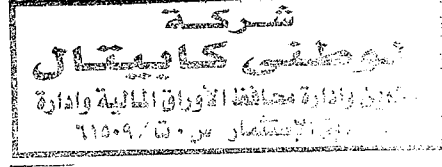 شركة
نوطنى كابيتال
وادارة محافظ الأوراق المالية وادارة
الإستثمار س.ت/٦١٥٠٩